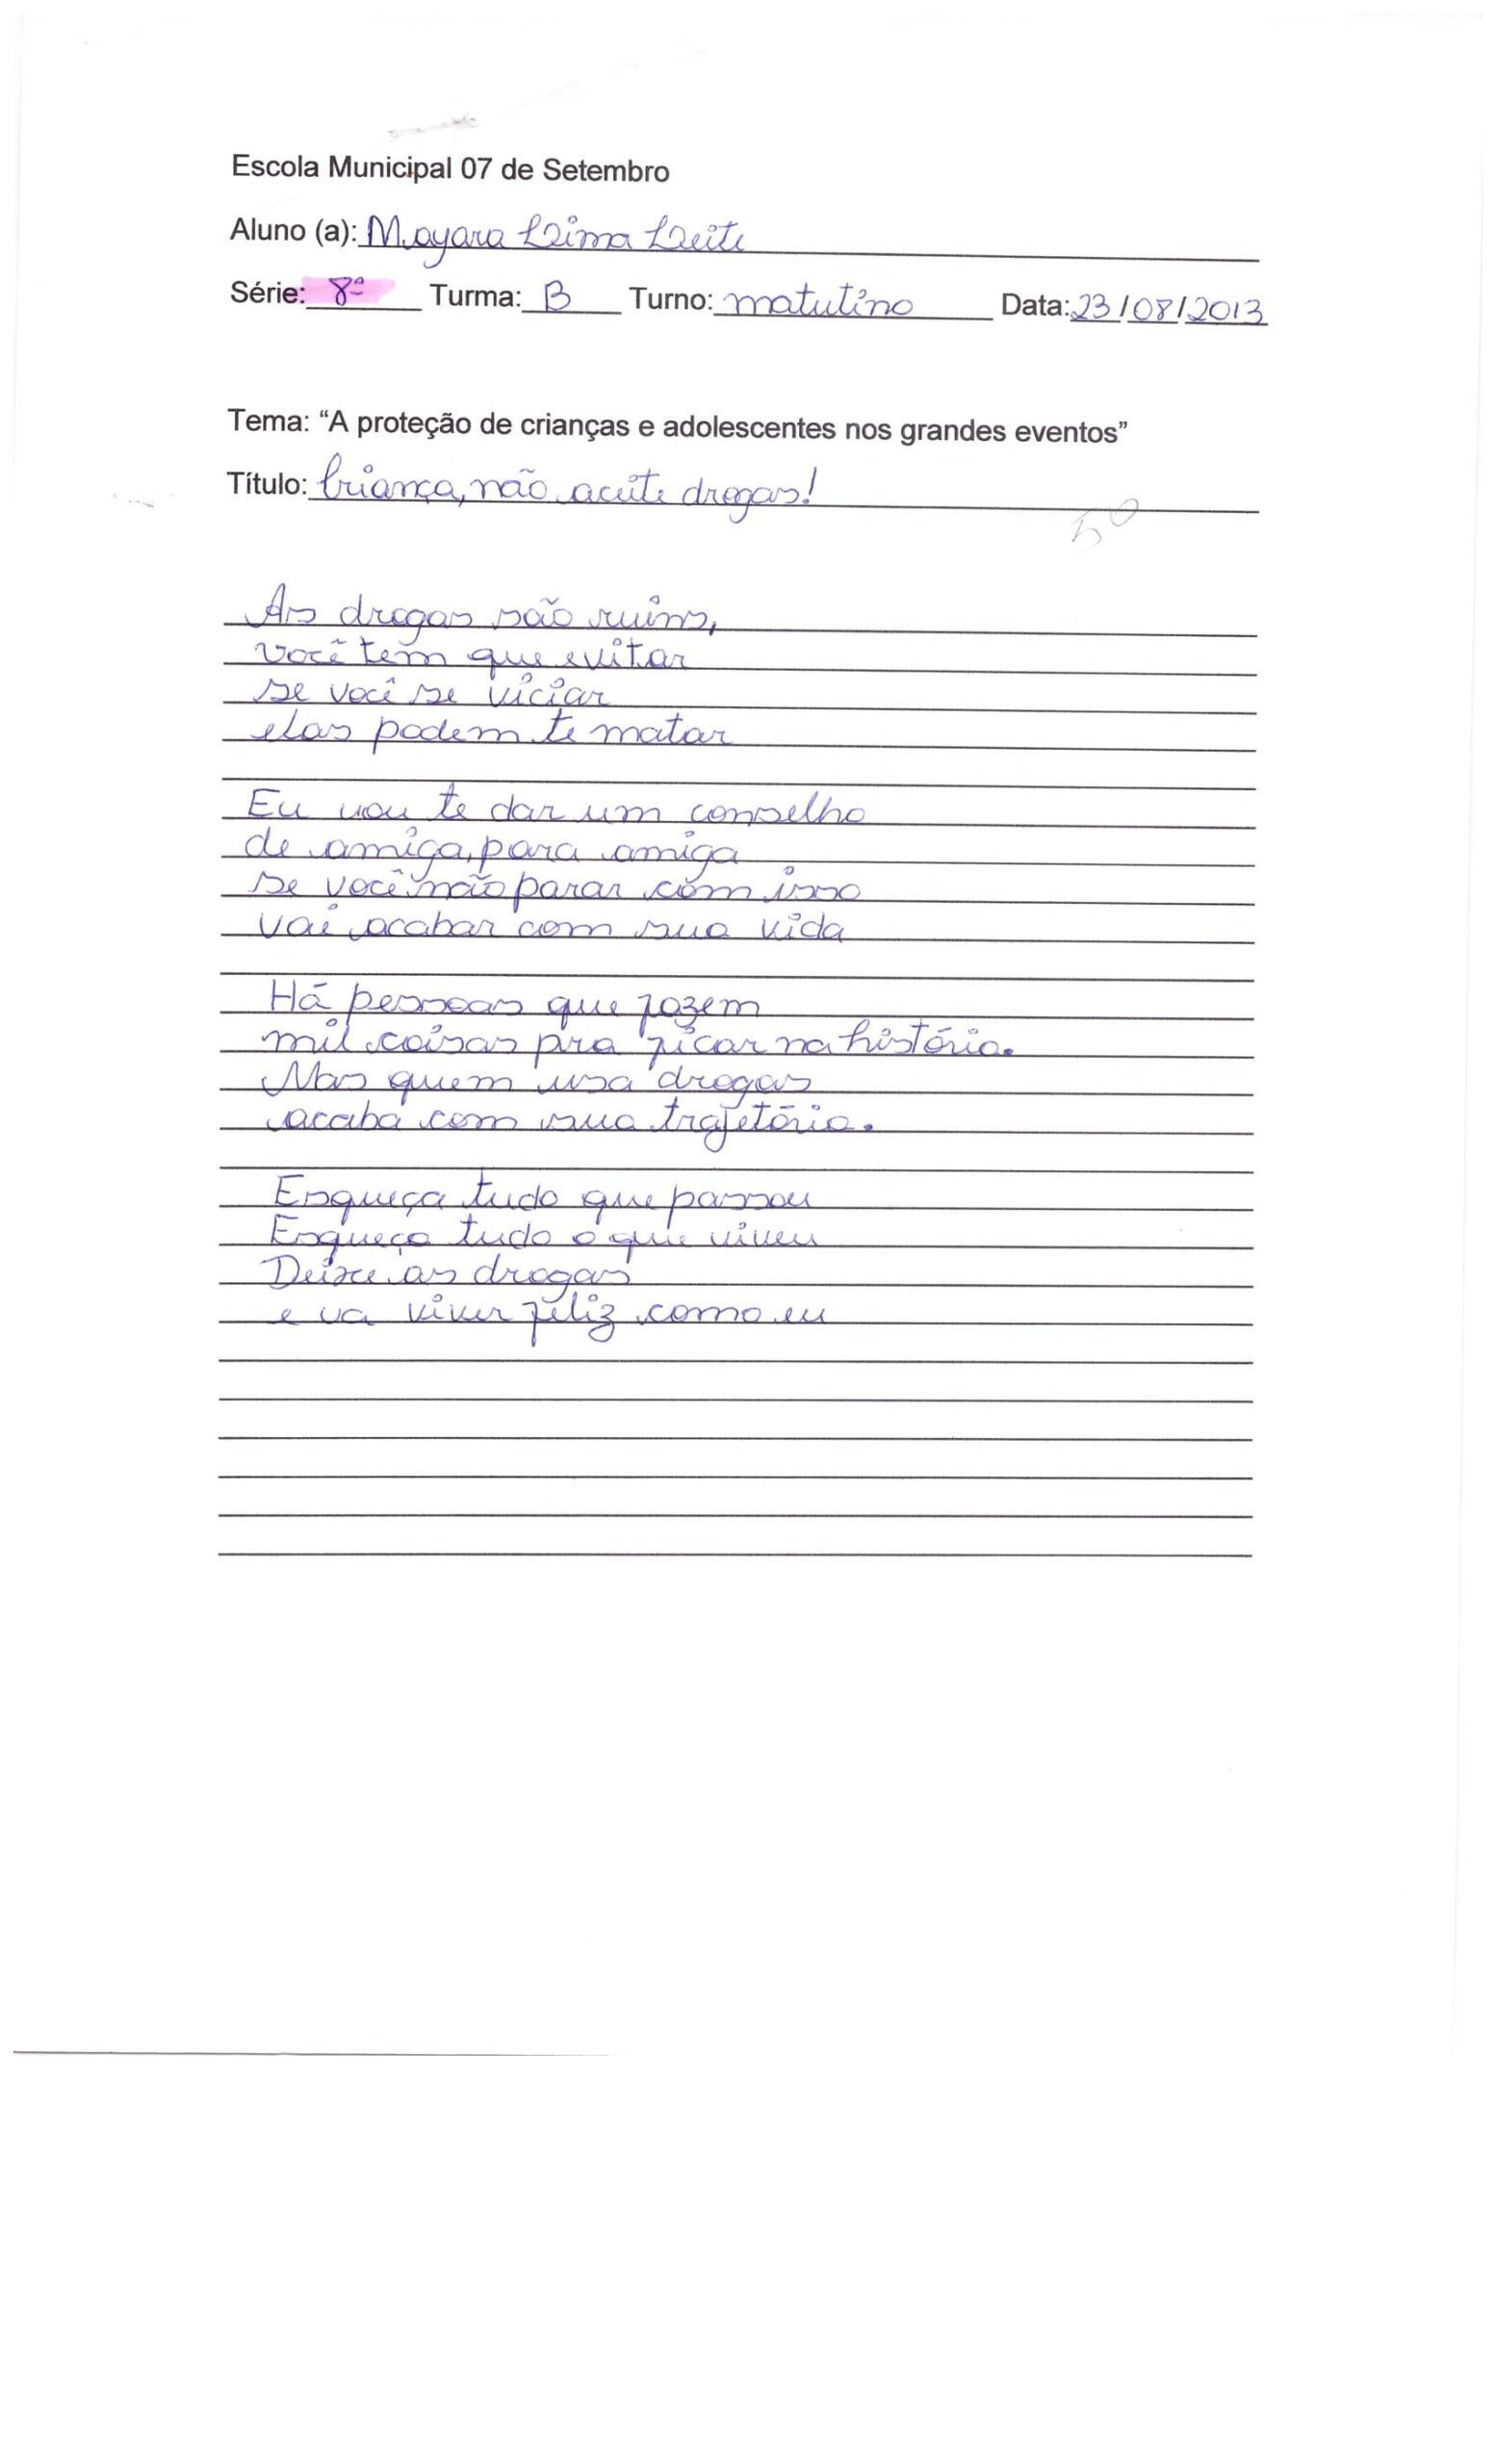 Escola Municipal 07 de Setembro
Aluno (a): Mayara Lima Leite
Série: 8ª Turma: B Turno: matutino Data: 23/08/2013
Tema: “A proteção de crianças e adolescentes nos grandes eventos”
Título: Criança, não aceite drogas!
5º
As drogas são ruins,
você tem que evitar
se você se viciar
elas podem te matar
Eu vou te dar um conselho
de amiga, para amiga
se você não parar com isso
vai acabar com sua vida
Há pessoas que fazem
mil coisas pra ficar na história.
Mas quem usa drogas
acaba com sua trajetória.
Esqueça tudo que passou
Esqueça tudo o que viveu
Deixe as drogas
e va viver feliz como eu